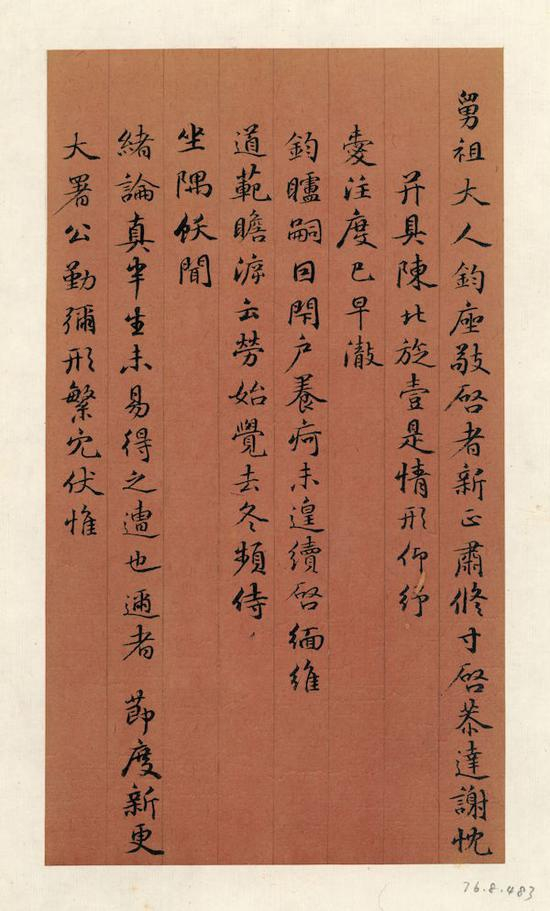 舅祖大人鈞座敬啓者新正肅修寸啓恭達謝忱
并具陳北旋壹是情形仰紓
厪注度已早澈
鈞矑嗣因閉户養疴未遑續啓緬維
道範瞻溯云勞始覺去冬頻侍
坐隅飫聞
緒論真半生未易得之遭也邇者 節度新更
大署公勤彌形繁冗伏惟
76.8.483